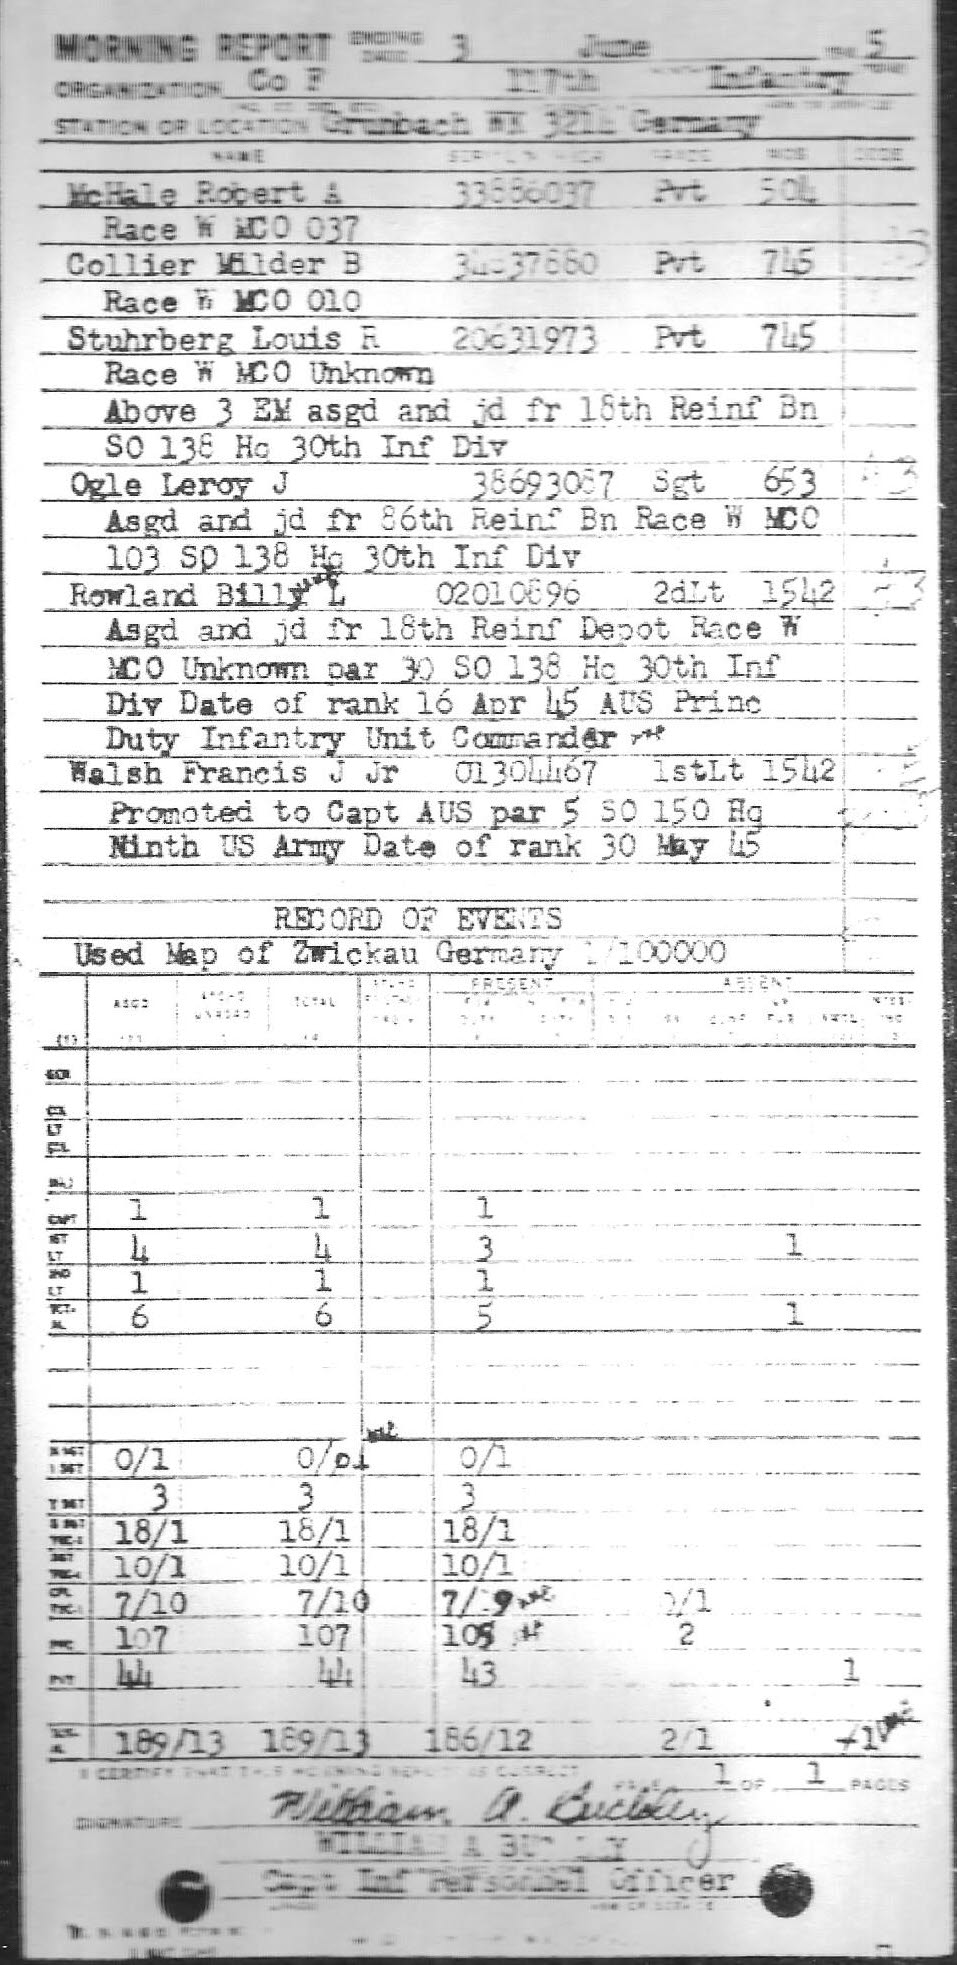 MORNING REPORT ENDING DATE 3 June 5
ORGANIZATION Co F 117th Infantry
STATION OR LOCATION Grunbach WK Germany
NAME GRADE MOS CODE
McHale Robert A 33886037 Pvt 504
Race W MCO 037
Collier Milder B Pvt 745
Race W MCO 010
Stuhrberg Louis R 20631973 Pvt 745
Race W MCO Unknown
Above 3 EM asgd and jd fr 18th Reinf Bn
SO 138 Hq 30th Inf Div
Ogle Leroy J 38693087 Sgt 653
Asgd and jd fr 86th Reinf Bn Race W MCO
103 SO 138 Hq 30th Inf Div
Rowland Billy L 02010896 2dLt 1542
Asgd and jd fr 18th Reinf Depot Race W
MCO Unknown par 30 SO 138 Hq 30th Inf
Div Date of rank 16 Apr 45 AUS Princ
Duty Infantry Unit Commander
Walsh Francis J Jr 01304467 1stLt 1542
Promoted to Capt AUS par 5 SO 150 Hq
Ninth US Army Date of rank 30 May 45
RECORD OF EVENTS
Used Map of Zwickau Germany 1/100000
PRESENT ABSENT
ASGD TOTAL
GEN
COL
LT
COL
MAJ
CAPT 1 1 1
1ST LT 4 4 3 1
2ND LT 1 1 1
TOTAL 6 6 5 1
M SGT 1 SGT 0/1 0/1 0/1
T SGT 3 3 3
S SGT 18/1 18/1 18/1
SGT 10/1 10/1 10/1
CPL 7/10 7/10 7/9 0/1
PFC 107 107 105 2
PVT 44 44 43 1
TOTAL 189/13 189/13 186/12 2/1 1
I CERTIFY THAT THIS MORNING REPORT IS CORRECT
PAGE 1 OF 1 PAGES
SIGNATURE William A. Buckley
WILLIAM A
Capt Inf Personnel Officer